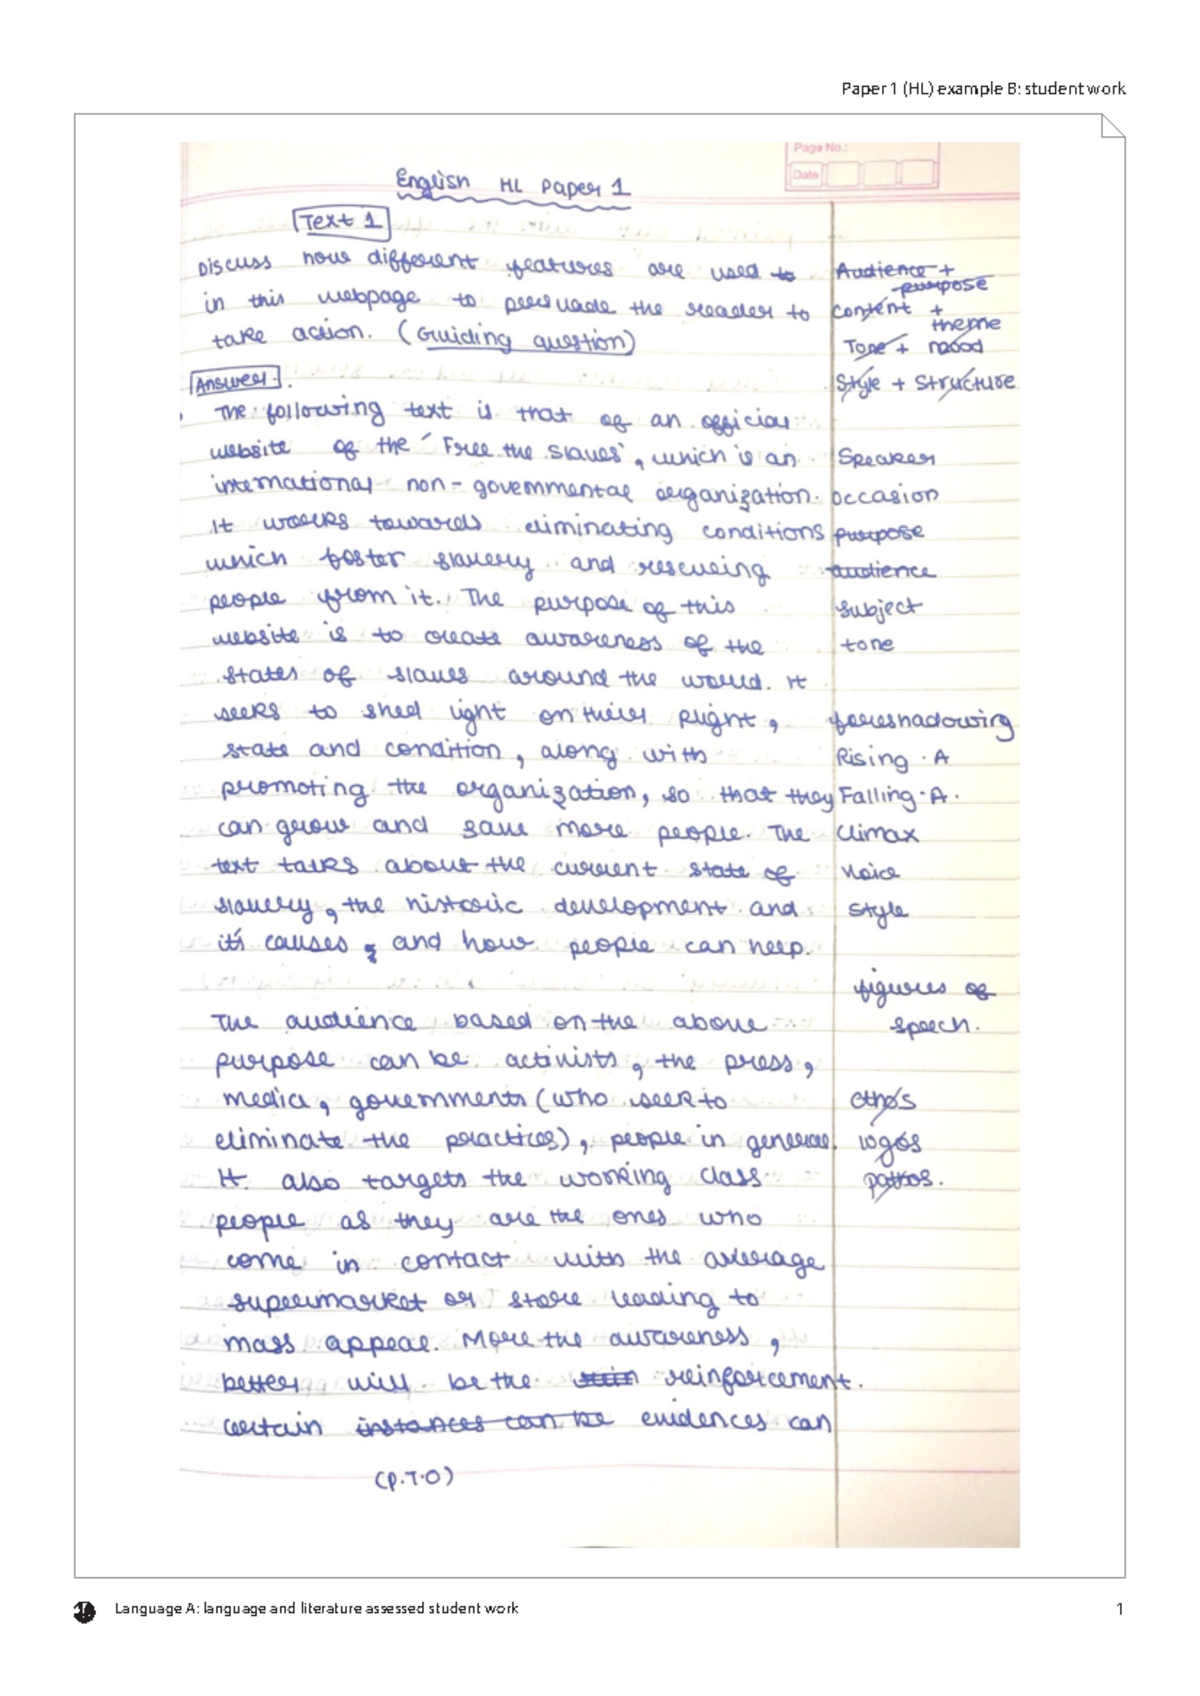 Paper 1 (HL) example B: student work
Page No.:
Date
English HL Paper 1
Text 1
Discuss how different features are used to
in this webpage to persuade the reader to
take action. (Guiding question)
Answer.
The following text is that of an official
website of the 'Free the slaves', which is an
international non-governmental organization.
It works towards eliminating conditions
which foster slavery and rescueing
people from it. The purpose of this
website is to create awareness of the
states of slaves around the world. It
seeks to shed light on their plight,
state and condition, along with
promoting the organization, so that they
can grow and save more people. The
text talks about the current state of
slavery, the historic development and
it's causes, and how people can help.
The audience based on the above
purpose can be activists, the press,
media, governments (who seek to
eliminate the practices), people in general.
It also targets the working class
people as they are the ones who
come in contact with the average
supermarket or store leading to
mass appeal. More the awareness,
better will be the reinforcement.
Certain instances can be evidences can
(P.T.O)
Audience +
purpose
content +
theme
Tone + mood
Style + Structure
Speaker
occasion
purpose
audience
subject
tone
foreshadowing
Rising . A
Falling . A .
Climax
Voice
Style
figures of
speech.
ethos
logos
pathos.
Language A: language and literature assessed student work
1